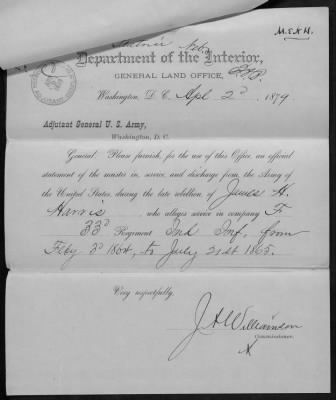 M.E.H.H.
Department of the Interior,
GENERAL LAND OFFICE,
Washington, D. C. Apl 2d, 1879
Adjutant General U. S. Army,
Washington, D. C.
General: Please furnish, for the use of this Office, an official
statement of the muster in, service, and discharge from the Army of
the United States, during the late rebellion, of James H.
Harris who alleges service in company F
33d Regiment Ind Inf. from
Feby 3d 1864, to July 21st 1865.
Very respectfully,
J A Williamson
Commissioner.